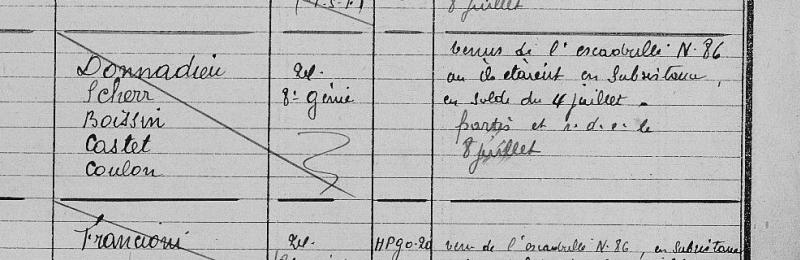 8 juillet
venus de l'escadrille N. 86
Donnadieu
où ils étaient en subsistance,
Scherr 8e Génie en solde du 4 juillet.
Boissin partis et r. d. e. le
Castet 8 juillet
Coulon
Francioni HP 90.20 venu de l'escadrille N. 86, en subsistance